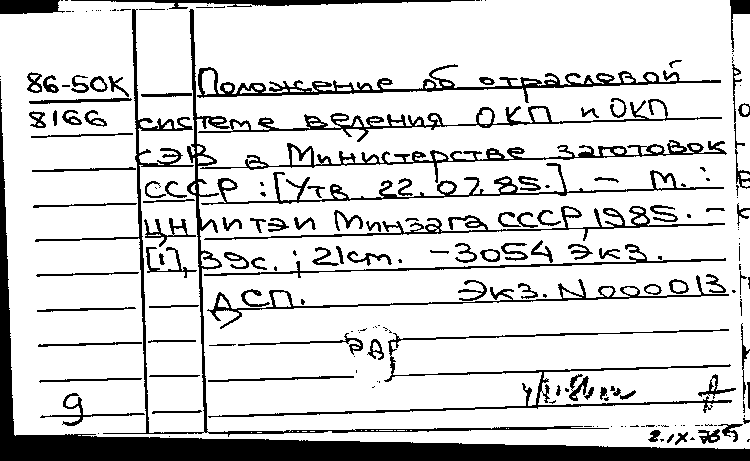 86-50К Положение об отраслевой
8166 системе ведения ОКП и ОКП
СЭВ в Министерстве заготовок
СССР : [Утв. 22.07.85.]. – М. :
ЦНИИТЭИ Минзага СССР, 1985. –
[1], 39с. ; 21см. – 3054 экз.
ДСП. Экз. N 000013.
9
2.IX-